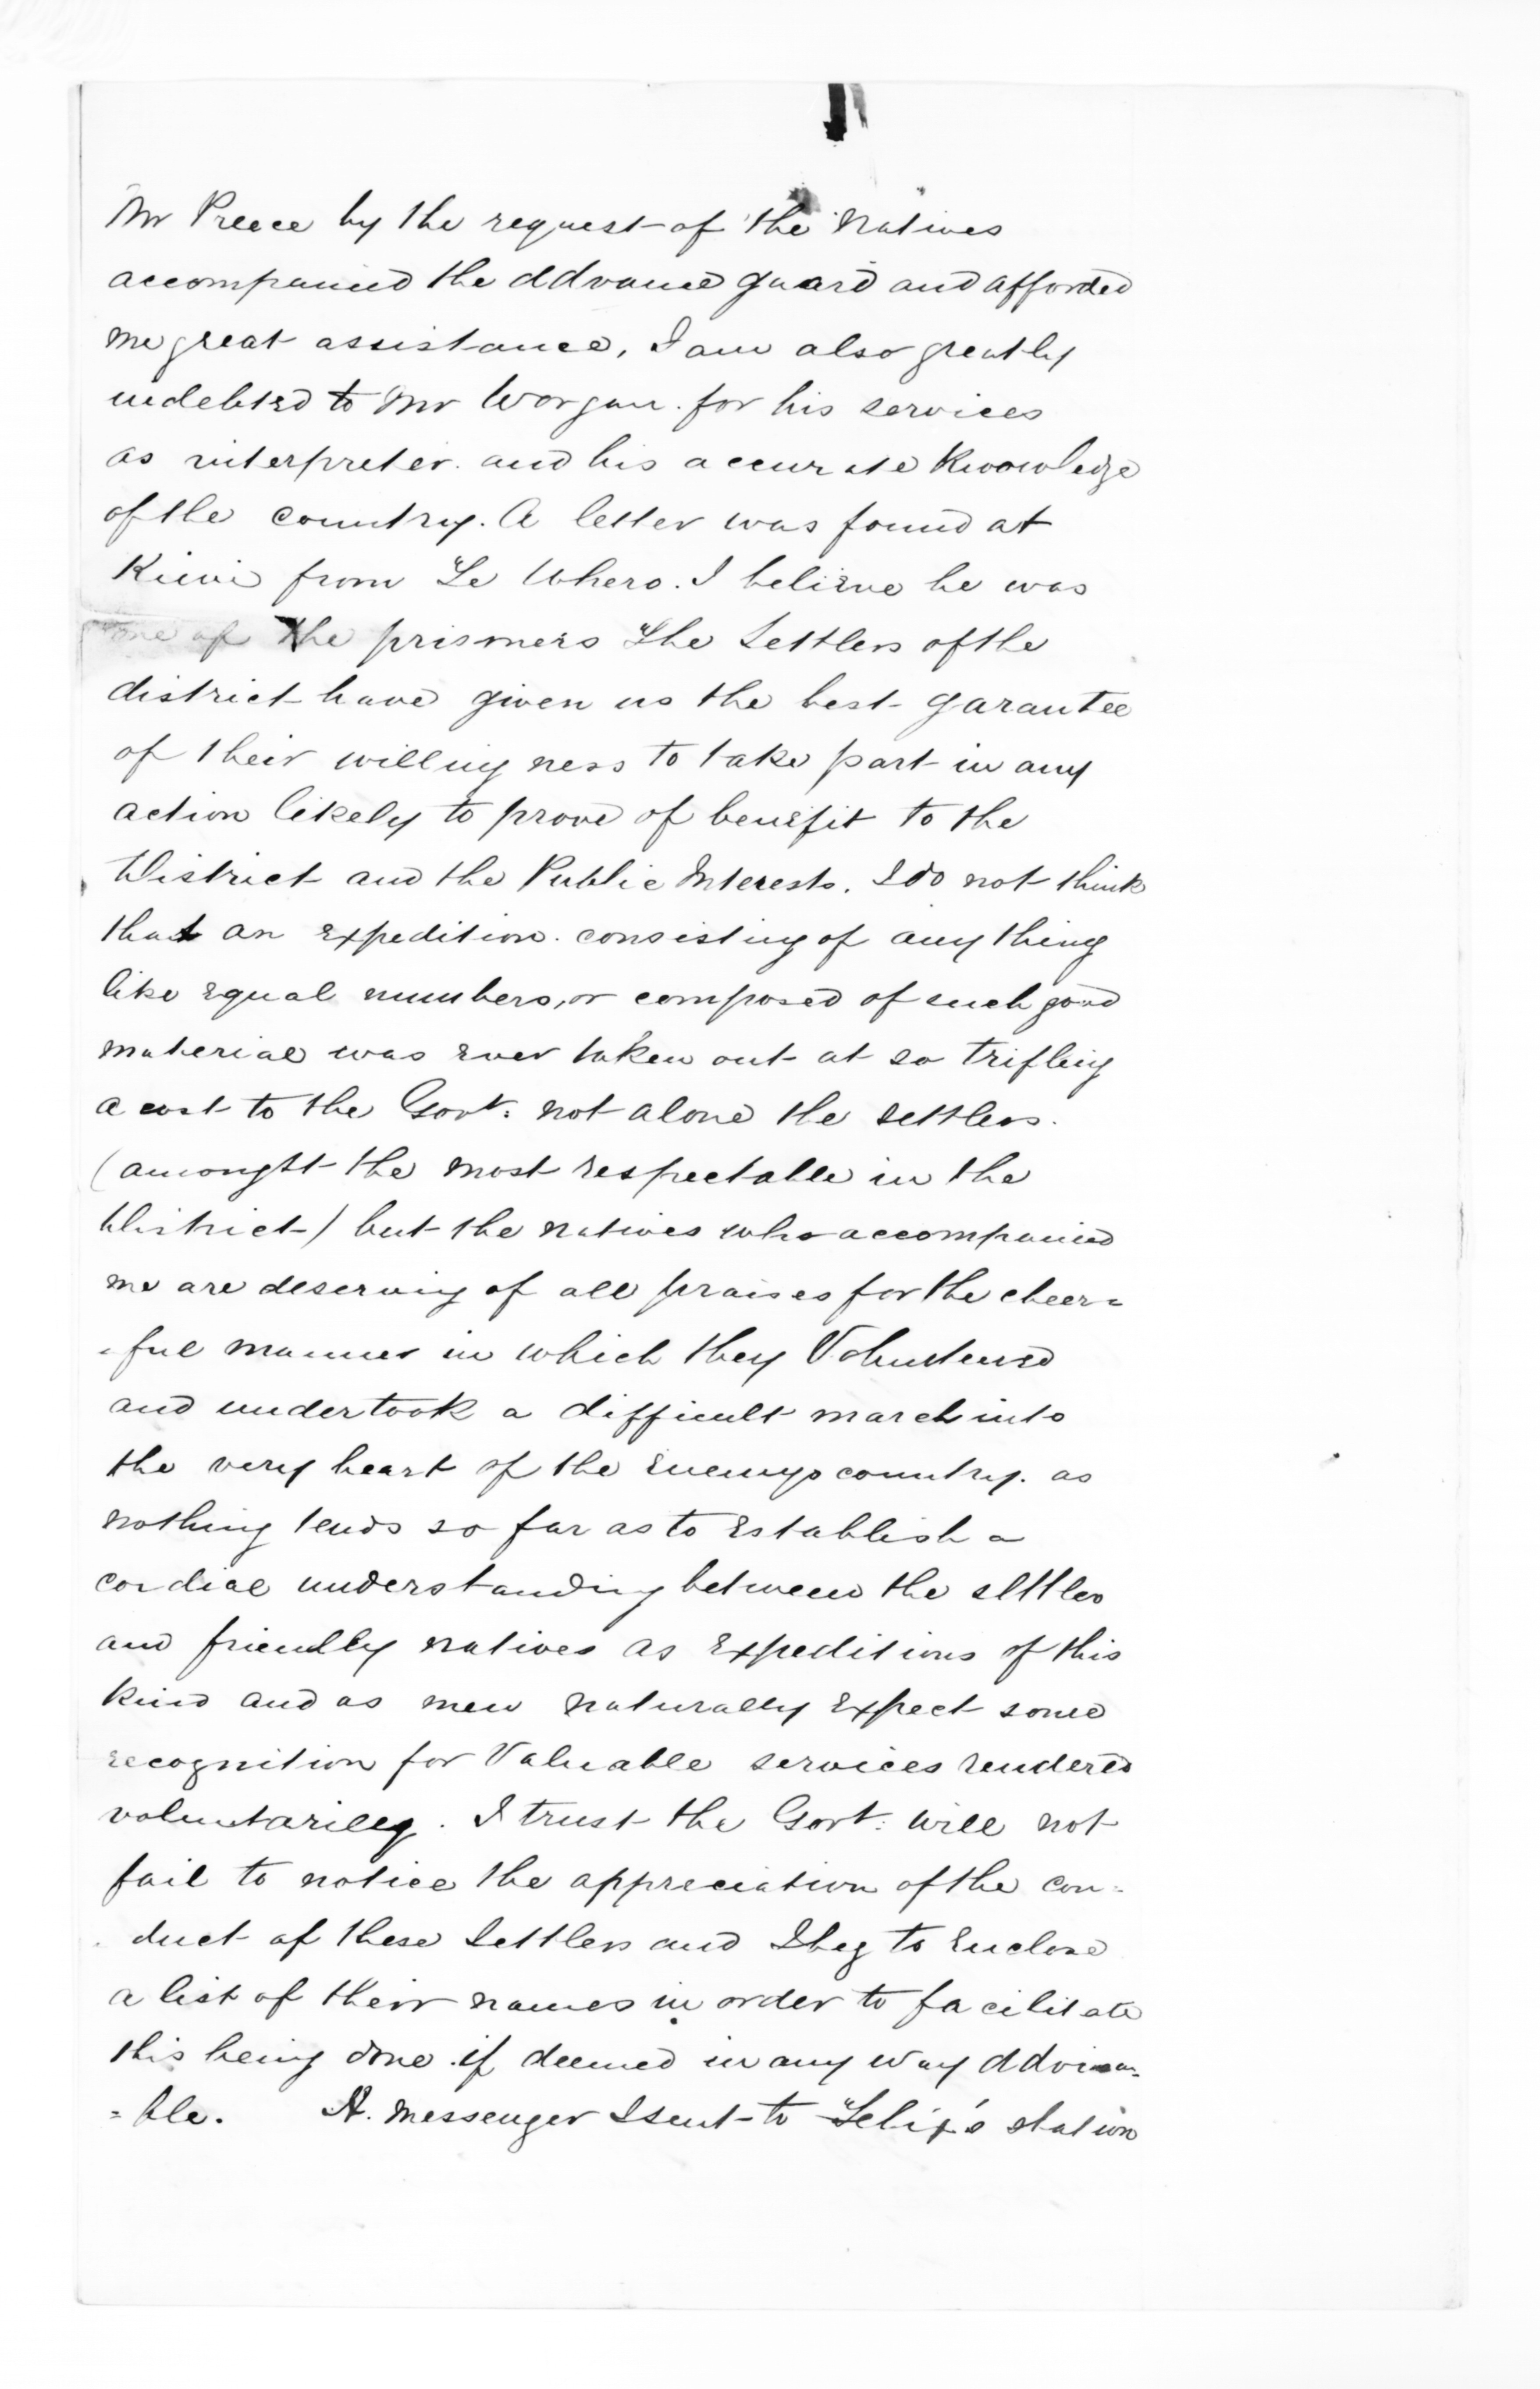 Mr Preece by the request of the Natives
accompanied the Advance guard and afforded
me great assistance, I am also greatly
indebted to Mr Worgan. for his services
as interpreter. and his accurate Knowledge
of the country. A letter was found at
Kiwi from Te Whero. I believe he was
one of the prisoners The Settlers of the
district have given us the best garantee
of their willingness to take part in any
action likely to prove of benefit to the
District and the Public Interests. I do not think
that an expedition. consisting of anything
like equal numbers, or composed of such good
material was ever taken out at so trifling
a cost to the Govt: not alone the settlers.
(amongst the most respectable in the
District) but the natives who accompanied
me are deserving of all praises for the cheer=
=ful manner in which they Volunteered
and undertook a difficult march into
the very heart of the Enemys country. as
nothing tends so far as to Establish a
cordial understanding between the settlers
and friendly natives as Expeditions of this
kind and as men naturally Expect some
recognition for Valuable services rendered
voluntarilly. I trust the Govt: will not
fail to notice the appreciation of the con=
duct of these Settlers and I beg to Enclose
a list of their names in order to facilitate
this being done if deemed in any way Advisa=
=ble. A. Messenger I sent to station